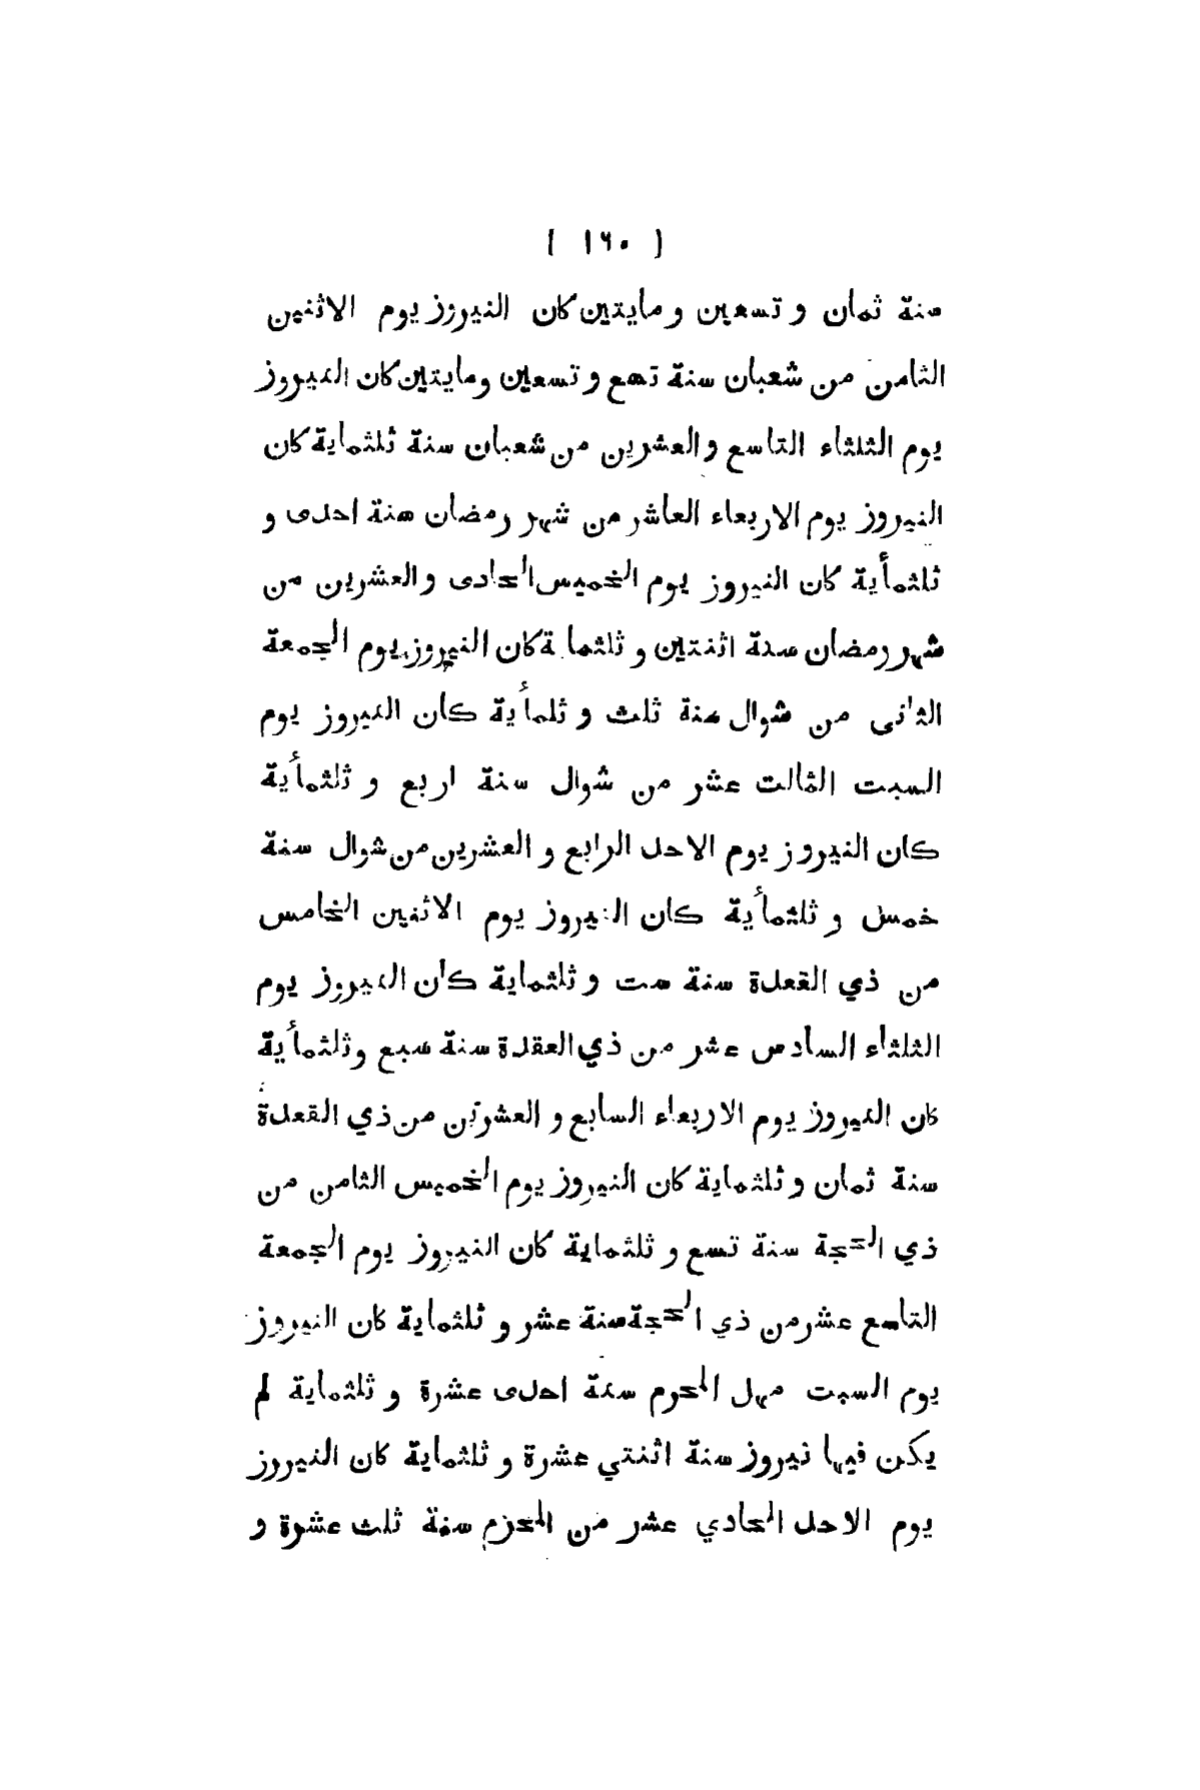 ( ١٦٠ )
سنة ثمان و تسعين و مايتين كان النيروز يوم الاثنين
الثامن من شعبان سنة تسع و تسعين ومايتين كان النيروز
يوم الثلثاء التاسع والعشرين من شعبان سنة ثلثماية كان
النيروز يوم الاربعاء العاشر من شهر رمضان سنة احدى و
ثلثمأية كان النيروز يوم الخميس الحادى والعشرين من
شهر رمضان سنة اثنتين و ثلثماية كان النيروز يوم الجمعة
الثانى من شوال سنة ثلث و ثلمأية كان النيروز يوم
السبت الثالث عشر من شوال سنة اربع و ثلثمأية
كان النيروز يوم الاحد الرابع و العشرين من شوال سنة
خمس و ثلثمأية كان النيروز يوم الاثنين الخامس
من ذي القعدة سنة ست و ثلثماية كان النيروز يوم
الثلثاء السادس عشر من ذي العقدة سنة سبع وثلثمأية
كان النيروز يوم الاربعاء السابع و العشرين من ذي القعدة
سنة ثمان و ثلثماية كان النيروز يوم الخميس الثامن من
ذي الحجة سنة تسع و ثلثماية كان النيروز يوم الجمعة
التاسع عشر من ذي الحجة سنة عشر و ثلثماية كان النيروز
يوم السبت مهل المحرم سنة احدى عشرة و ثلثماية لم
يكن فيها نيروز سنة اثنتي عشرة و ثلثماية كان النيروز
يوم الاحد الحادي عشر من المحرم سنة ثلث عشرة و